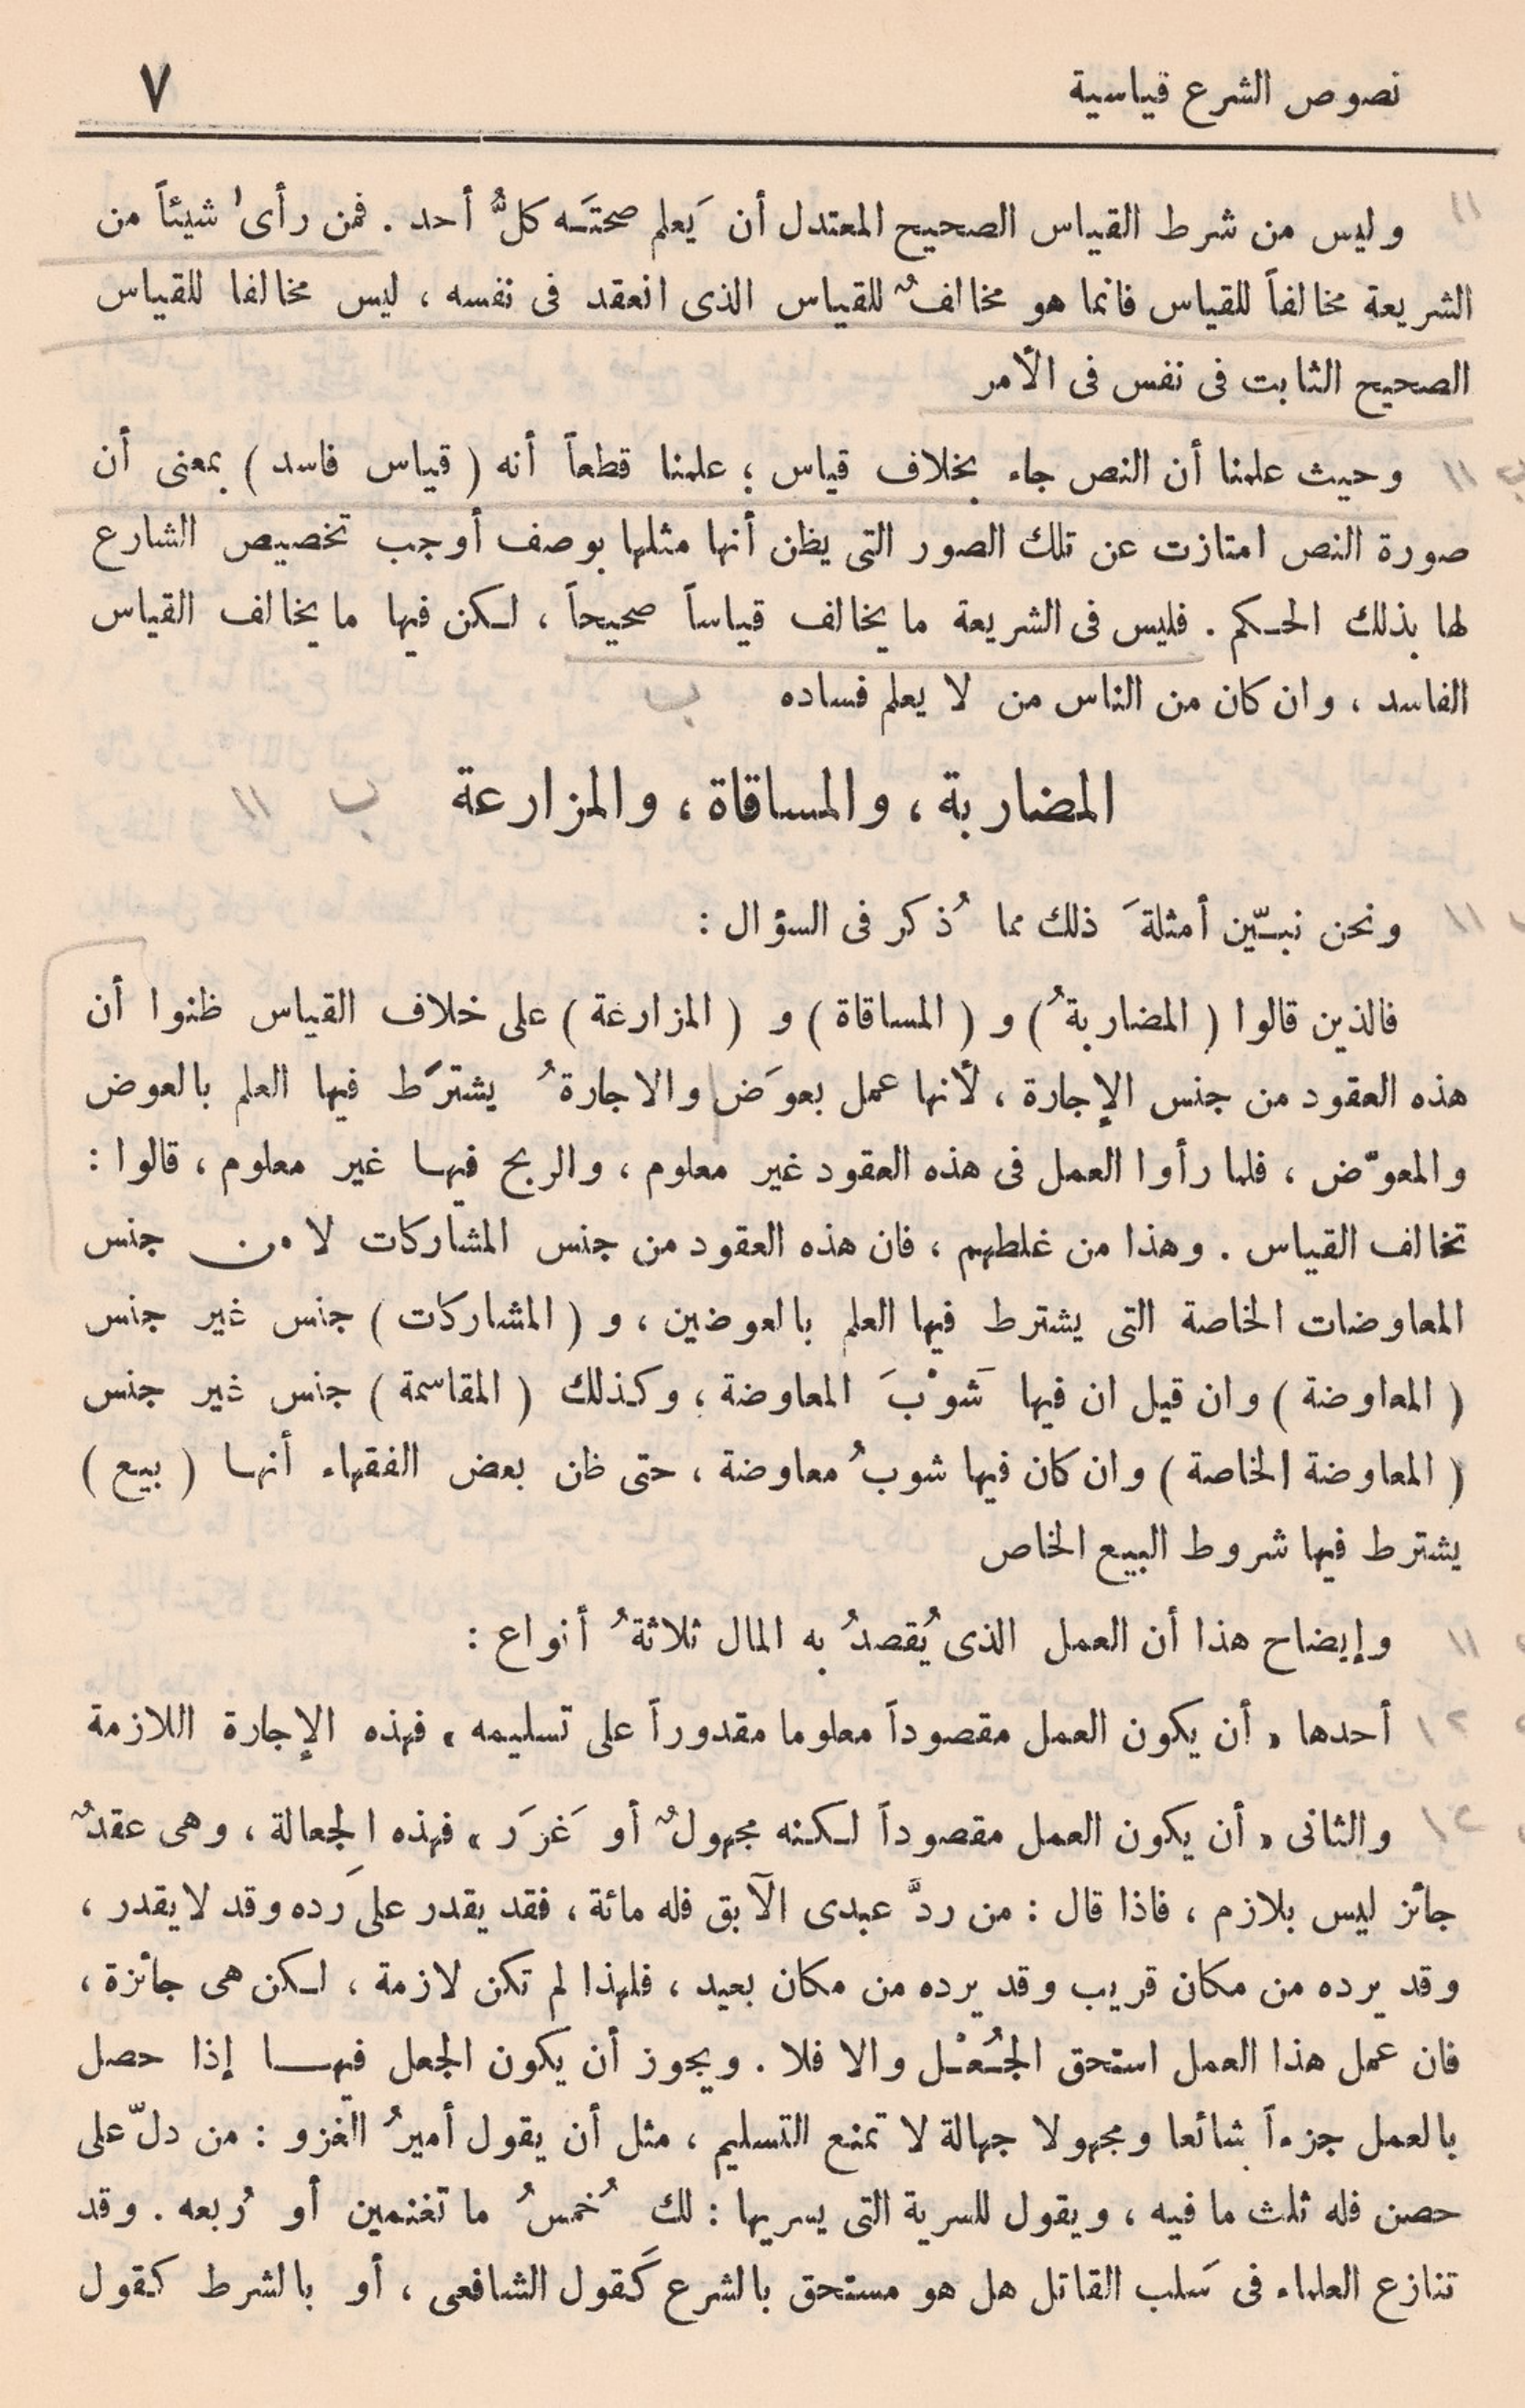 نصوص الشرع قياسية ٧
وليس من شرط القياس الصحيح المعتدل أن يَعلم صحتَـه كلُّ أحد . فمن رأى شيئاً من
الشريعة مخالفاً للقياس فانما هو مخالفٌ للقياس الذى انعقد فى نفسه ، ليس مخالفا للقياس
الصحيح الثابت فى نفس فى الأمر
وحيث علمنا أن النص جاء بخلاف قياس ؛ علمنا قطعاً أنه ( قياس فاسد ) بمعنى أن
صورة النص امتازت عن تلك الصور التى يظن أنها مثلها بوصف أوجب تخصيص الشارع
لها بذلك الحـكم . فليس فى الشريعة ما يخالف قياساً صحيحاً ، لـكن فيها ما يخالف القياس
الفاسد ، وان كان من الناس من لا يعلم فساده
المضاربة ، والمساقاة ، والمزارعة
ونحن نبـيّن أمثلةَ ذلك مما ذُكر فى السؤال :
فالذين قالوا ( المضاربةُ ) و ( المساقاة ) و ( المزارعة ) على خلاف القياس ظنوا أن
هذه العقود من جنس الإجارة ، لأنها عمل بعوَض والاجارةُ يشترَط فيها العلم بالعوض
والمعوّض ، فلما رأوا العمل فى هذه العقود غير معلوم ، والربح فيهـا غير معلوم ، قالوا :
تخالف القياس . وهذا من غلطهم ، فان هذه العقود من جنس المشاركات لا من جنس
المعاوضات الخاصة التى يشترط فيها العلم بالعوضين ، و ( المشاركات ) جنس غير جنس
( المعاوضة ) وان قيل ان فيها شَوْبَ المعاوضة ، وكذلك ( المقاسمة ) جنس غير جنس
( المعاوضة الخاصة ) وان كان فيها شوبُ معاوضة ، حتى ظن بعض الفقهاء أنهـا ( بيع )
يشترط فيها شروط البيع الخاص
وإيضاح هذا أن العمل الذى يُقصدُ به المال ثلاثةُ أنواع :
أحدها « أن يكون العمل مقصوداً معلوما مقدوراً على تسليمه » فهذه الإجارة اللازمة
والثانى « أن يكون العمل مقصوداً لـكنه مجهولٌ أو غَرَر » فهذه الجعالة ، وهى عقدٌ
جائز ليس بلازم ، فاذا قال : من ردَّ عبدى الآبق فله مائة ، فقد يقدر على رَده وقد لا يقدر ،
وقد يرده من مكان قريب وقد يرده من مكان بعيد ، فلهذا لم تكن لازمة ، لـكن هى جائزة ،
فان عمل هذا العمل استحق الجُـعْـل والا فلا . ويجوز أن يكون الجعل فيهـــا إذا حصل
بالعمل جزءاً شائعا ومجهولا جهالة لا تمنع التسليم ، مثل أن يقول أميرُ الغزو : من دلّ على
حصن فله ثلث ما فيه ، ويقول للسرية التى يسريها : لك خُمسُ ما تغنمين أو رُبعه . وقد
تنازع العلماء فى سَلب القاتل هل هو مستحق بالشرع كَقول الشافعى ، أو بالشرط كقول